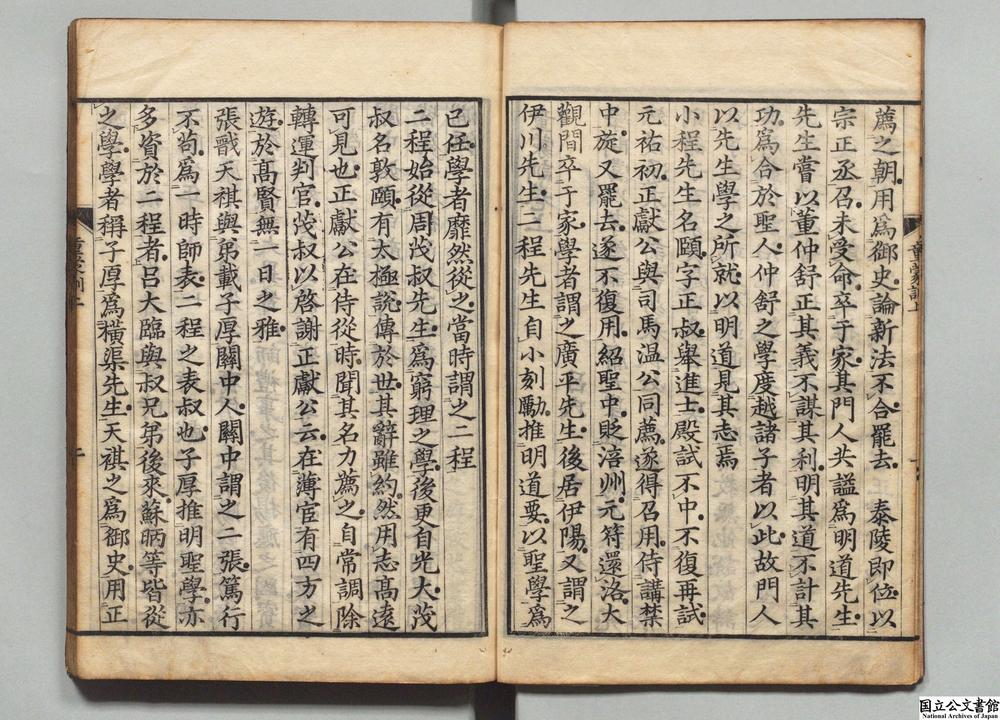 薦之朝用爲御史論新法不合罷去　泰陵即位以
宗正丞召未受命卒于家其門人共謚爲明道先生
先生嘗以董仲舒正其義不謀其利明其道不計其
功爲合於聖人仲舒之學度越諸子者以此故門人
以先生學之所就以明道見其志焉
小程先生名頤字正叔舉進士殿試不中不復再試
元祐初正獻公與司馬温公同薦遂得召用侍講禁
中旋又罷去遂不復用紹聖中貶涪州元符還洛大
觀間卒于家學者謂之廣平先生後居伊陽又謂之
伊川先生二程先生自小刻勵推明道要以聖學爲
童蒙訓上
已任學者靡然從之當時謂之二程
二程始從周茂叔先生爲窮理之學後更自光大茂
叔名敦頤有太極説傳於世其辭雖約然用志髙遠
可見也正獻公在侍從時聞其名力薦之自常調除
轉運判官茂叔以啓謝正獻公云在薄宦有四方之
遊於髙賢無一日之雅
張戩天祺與弟載子厚關中人關中謂之二張篤行
不苟爲一時師表二程之表叔也子厚推明聖學亦
多資於二程者吕大臨與叔兄弟後來蘇昞等皆從
之學學者稱子厚爲横渠先生天祺之爲御史用正
国立公文書館
National Archives of Japan